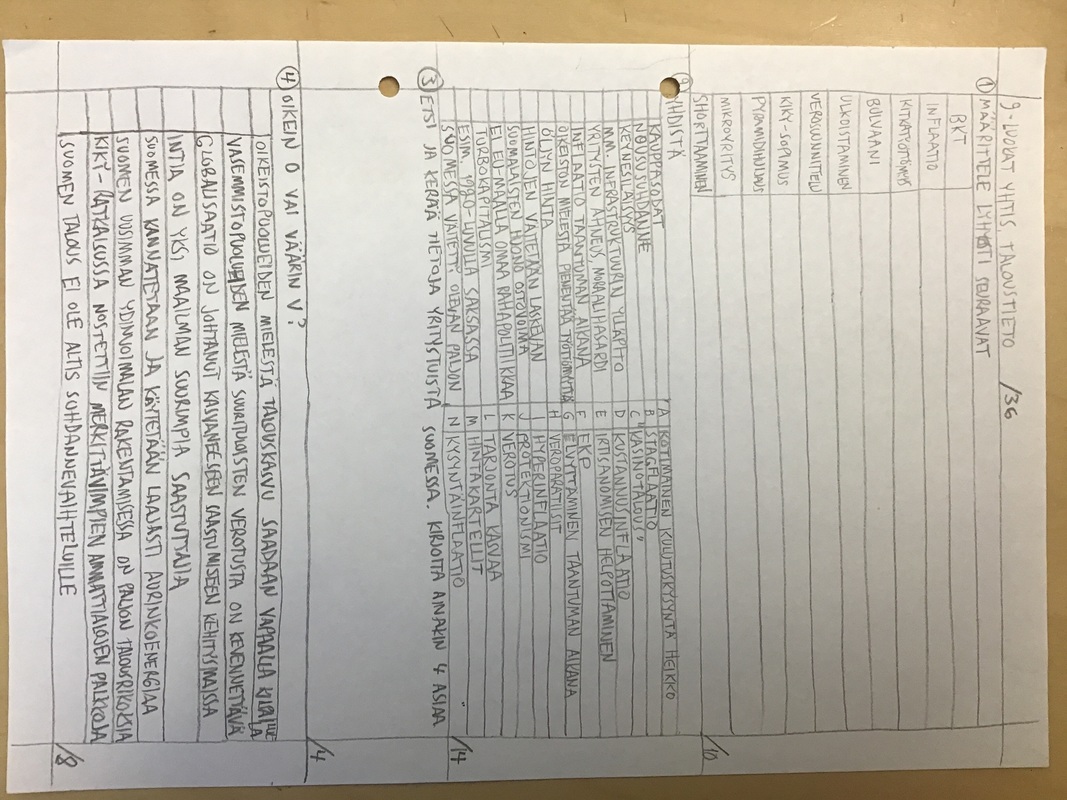 9-LUOKAT YHTIS. TALOUSTIETO /36
① MÄÄRITTELE LYHYESTI SEURAAVAT
BKT
INFLAATIO
KITKATYÖTTÖMYYS
BULVAANI
ULKOISTAMINEN
VEROSUUNNITTELU
KIKY-SOPIMUS
PYRAMIDIHUIJAUS
MIKROYRITYS
SHORTTAAMINEN
/10
② YHDISTÄ
KAUPPASODAT A KOTIMAINEN KULUTUSKYSYNTÄ HEIKKO
NOUSUSUHDANNE B STAGFLAATIO
KEYNESILÄISYYS C "KASINOTALOUS"
MM. INFRASTRUKTUURIN YLLÄPITO D KUSTANNUSINFLAATIO
YRITYSTEN AHNEUS, MORAALIHASARDI E IRTISANOMISEN HELPOTTAMINEN
INFLAATIO TAANTUMAN AIKANA F EKP
OIKEISTON MIELESTÄ PIENENTÄÄ TYÖTTÖMYYTTÄ G ELVYTTÄMINEN TAANTUMAN AIKANA
ÖLJYN HINTA H VEROPARATIISIT
HINTOJEN VÄITETÄÄN LASKEVAN I HYPERINFLAATIO
SUOMALAISTEN HUONO OSTOVOIMA J PROTEKTIONISMI
EI EU-MAALLA OMAA RAHAPOLITIIKKAA K VEROTUS
TURBOKAPITALISMI L TARJONTA KASVAA
ESIM. 1920-LUVULLA SAKSASSA M HINTAKARTELLIT
SUOMESSA VÄITETTY OLEVAN PALJON N KYSYNTÄINFLAATIO
/14
③ ETSI JA KERÄÄ TIETOJA YRITYSTUISTA SUOMESSA. KIRJOITA AINAKIN 4 ASIAA
/4
④ OIKEIN O VAI VÄÄRIN V?
OIKEISTOPUOLUEIDEN MIELESTÄ TALOUSKASVU SAADAAN VAPAALLA KILPAILULLA
VASEMMISTOPUOLUEIDEN MIELESTÄ SUURITULOISTEN VEROTUSTA ON KEVENNETTÄVÄ
GLOBALISAATIO ON JOHTANUT KASVANEESEEN SAASTUMISEEN KEHITYSMAISSA
INTIA ON YKSI MAAILMAN SUURIMPIA SAASTUTTAJIA
SUOMESSA KANNATETAAN JA KÄYTETÄÄN LAAJASTI AURINKOENERGIAA
SUOMEN UUSIMMAN YDINVOIMALAN RAKENTAMISESSA ON PALJON TALOUSRIKOKSIA
KIKY-RATKAISUSSA NOSTETTIIN MERKITTÄVIMPIEN AMMATTIALOJEN PALKKOJA
SUOMEN TALOUS EI OLE ALTIS SUHDANNEVAIHTELUILLE
/8